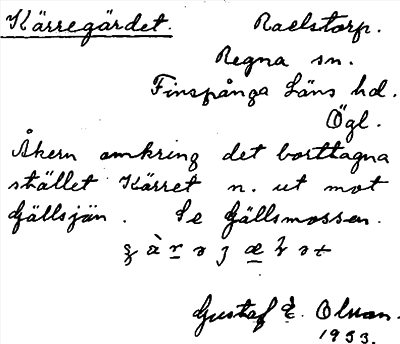 Kärregärdet. Raelstorp.
Regna sn.
Finspånga Läns hd.
Ögl.
Åkern omkring det borttagna
stället Kärret n. ut mot
Gällsjön. Se Gällsmossen.
Gustaf E. Olsson.
1953.